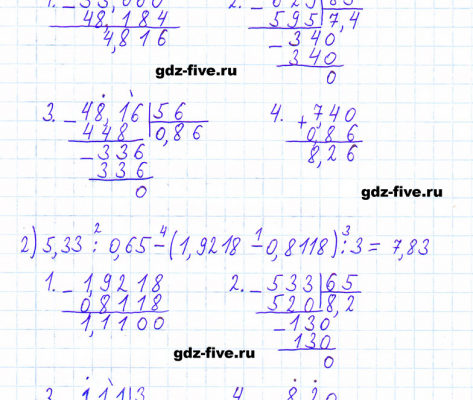 1. – 53,000
48,184
4,816
2. – 629 | 85
595 | 7,4
– 340
340
0
gdz-five.ru
3. – 48,16 | 56
448 | 0,86
– 336
336
0
4. + 7,40
0,86
8,26
gdz-five.ru
2) 5,33 : 0,65 – (1,9218 – 0,8118) : 3 = 7,83
2 4 1 3
1. – 1,9218
0,8118
1,1100
2. – 533 | 65
520 | 8,2
– 130
130
0
gdz-five.ru
3. 1,11 | 3
4. 8,20